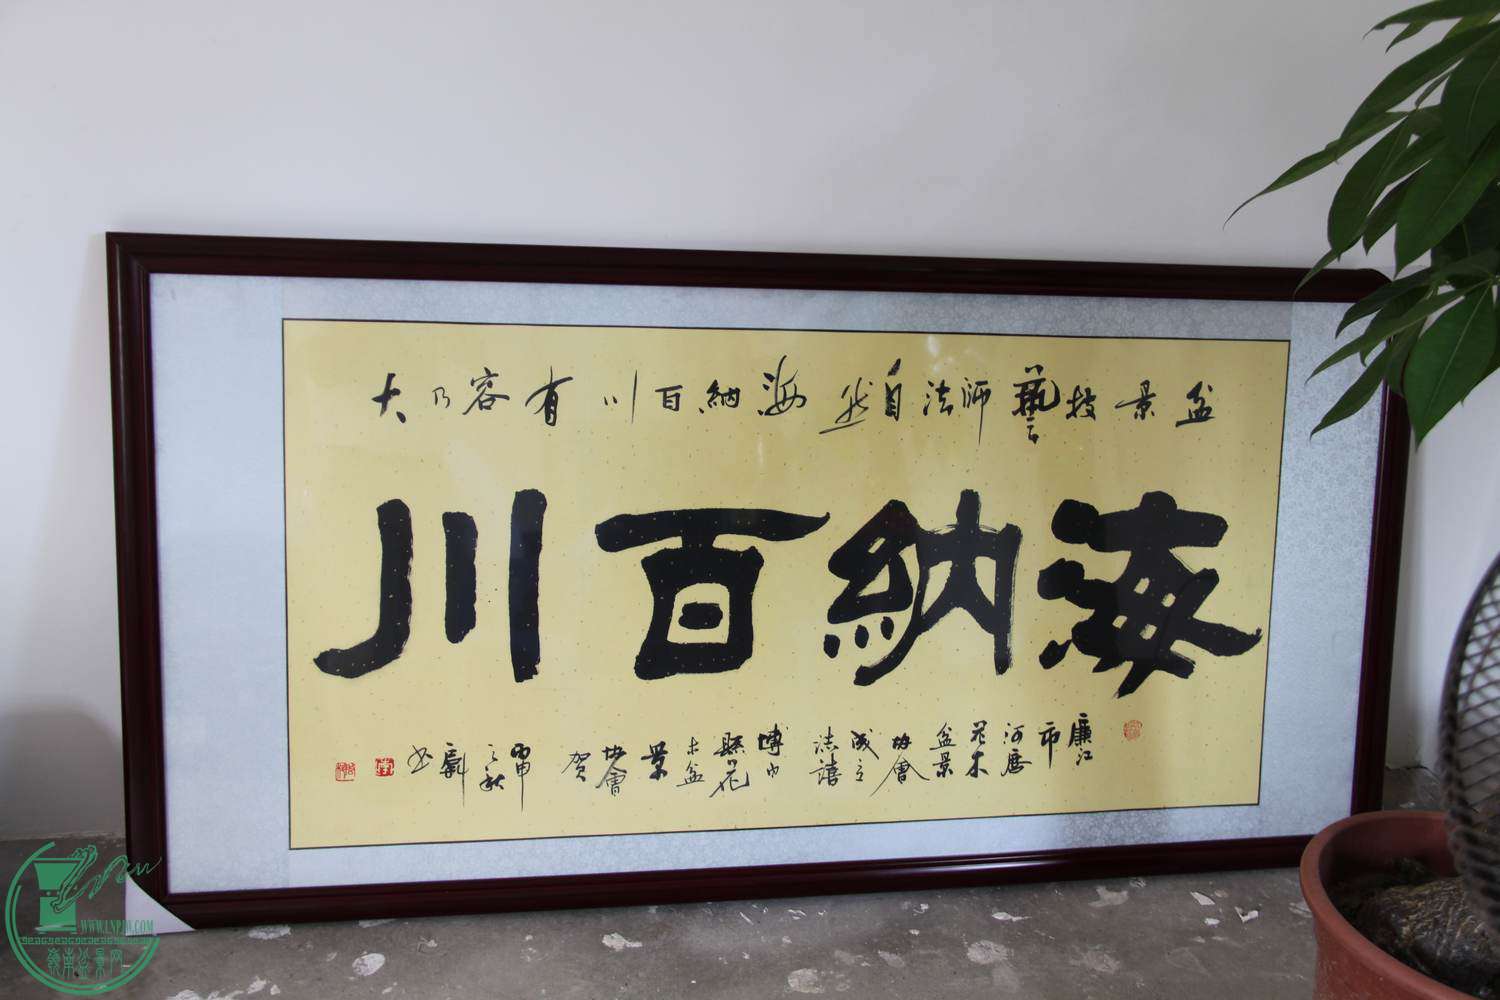 盆景技藝師法自然海納百川有容乃大
海納百川
廉江
市
河唇
花木
盆景
協會
成立
誌禧
博白
縣花
木盆
景
協會
賀
甲
之秋
書
WWW.LNPJW.COM
嶺南盆景网